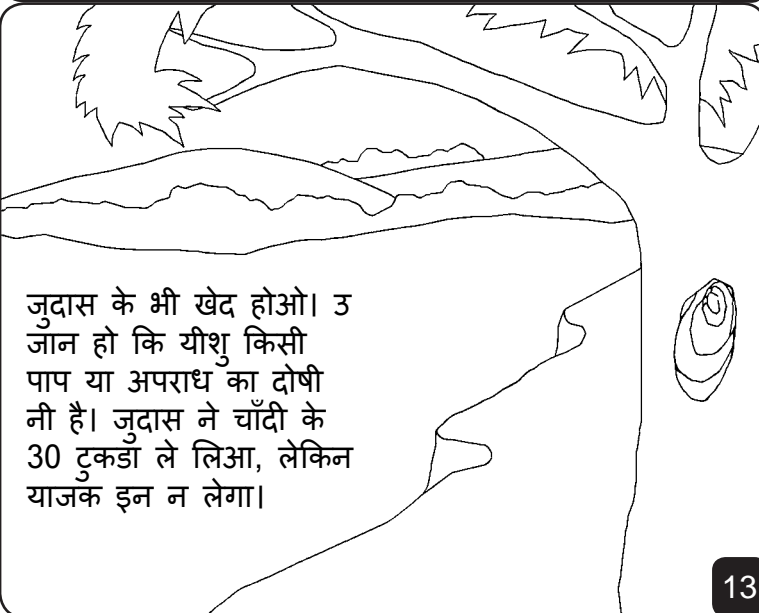 जुदास के भी खेद होओ। उ
जान हो कि यीशु किसी
पाप या अपराध का दोषी
नी है। जुदास ने चाँदी के
30 टुकडा ले लिआ, लेकिन
याजक इन न लेगा।
13